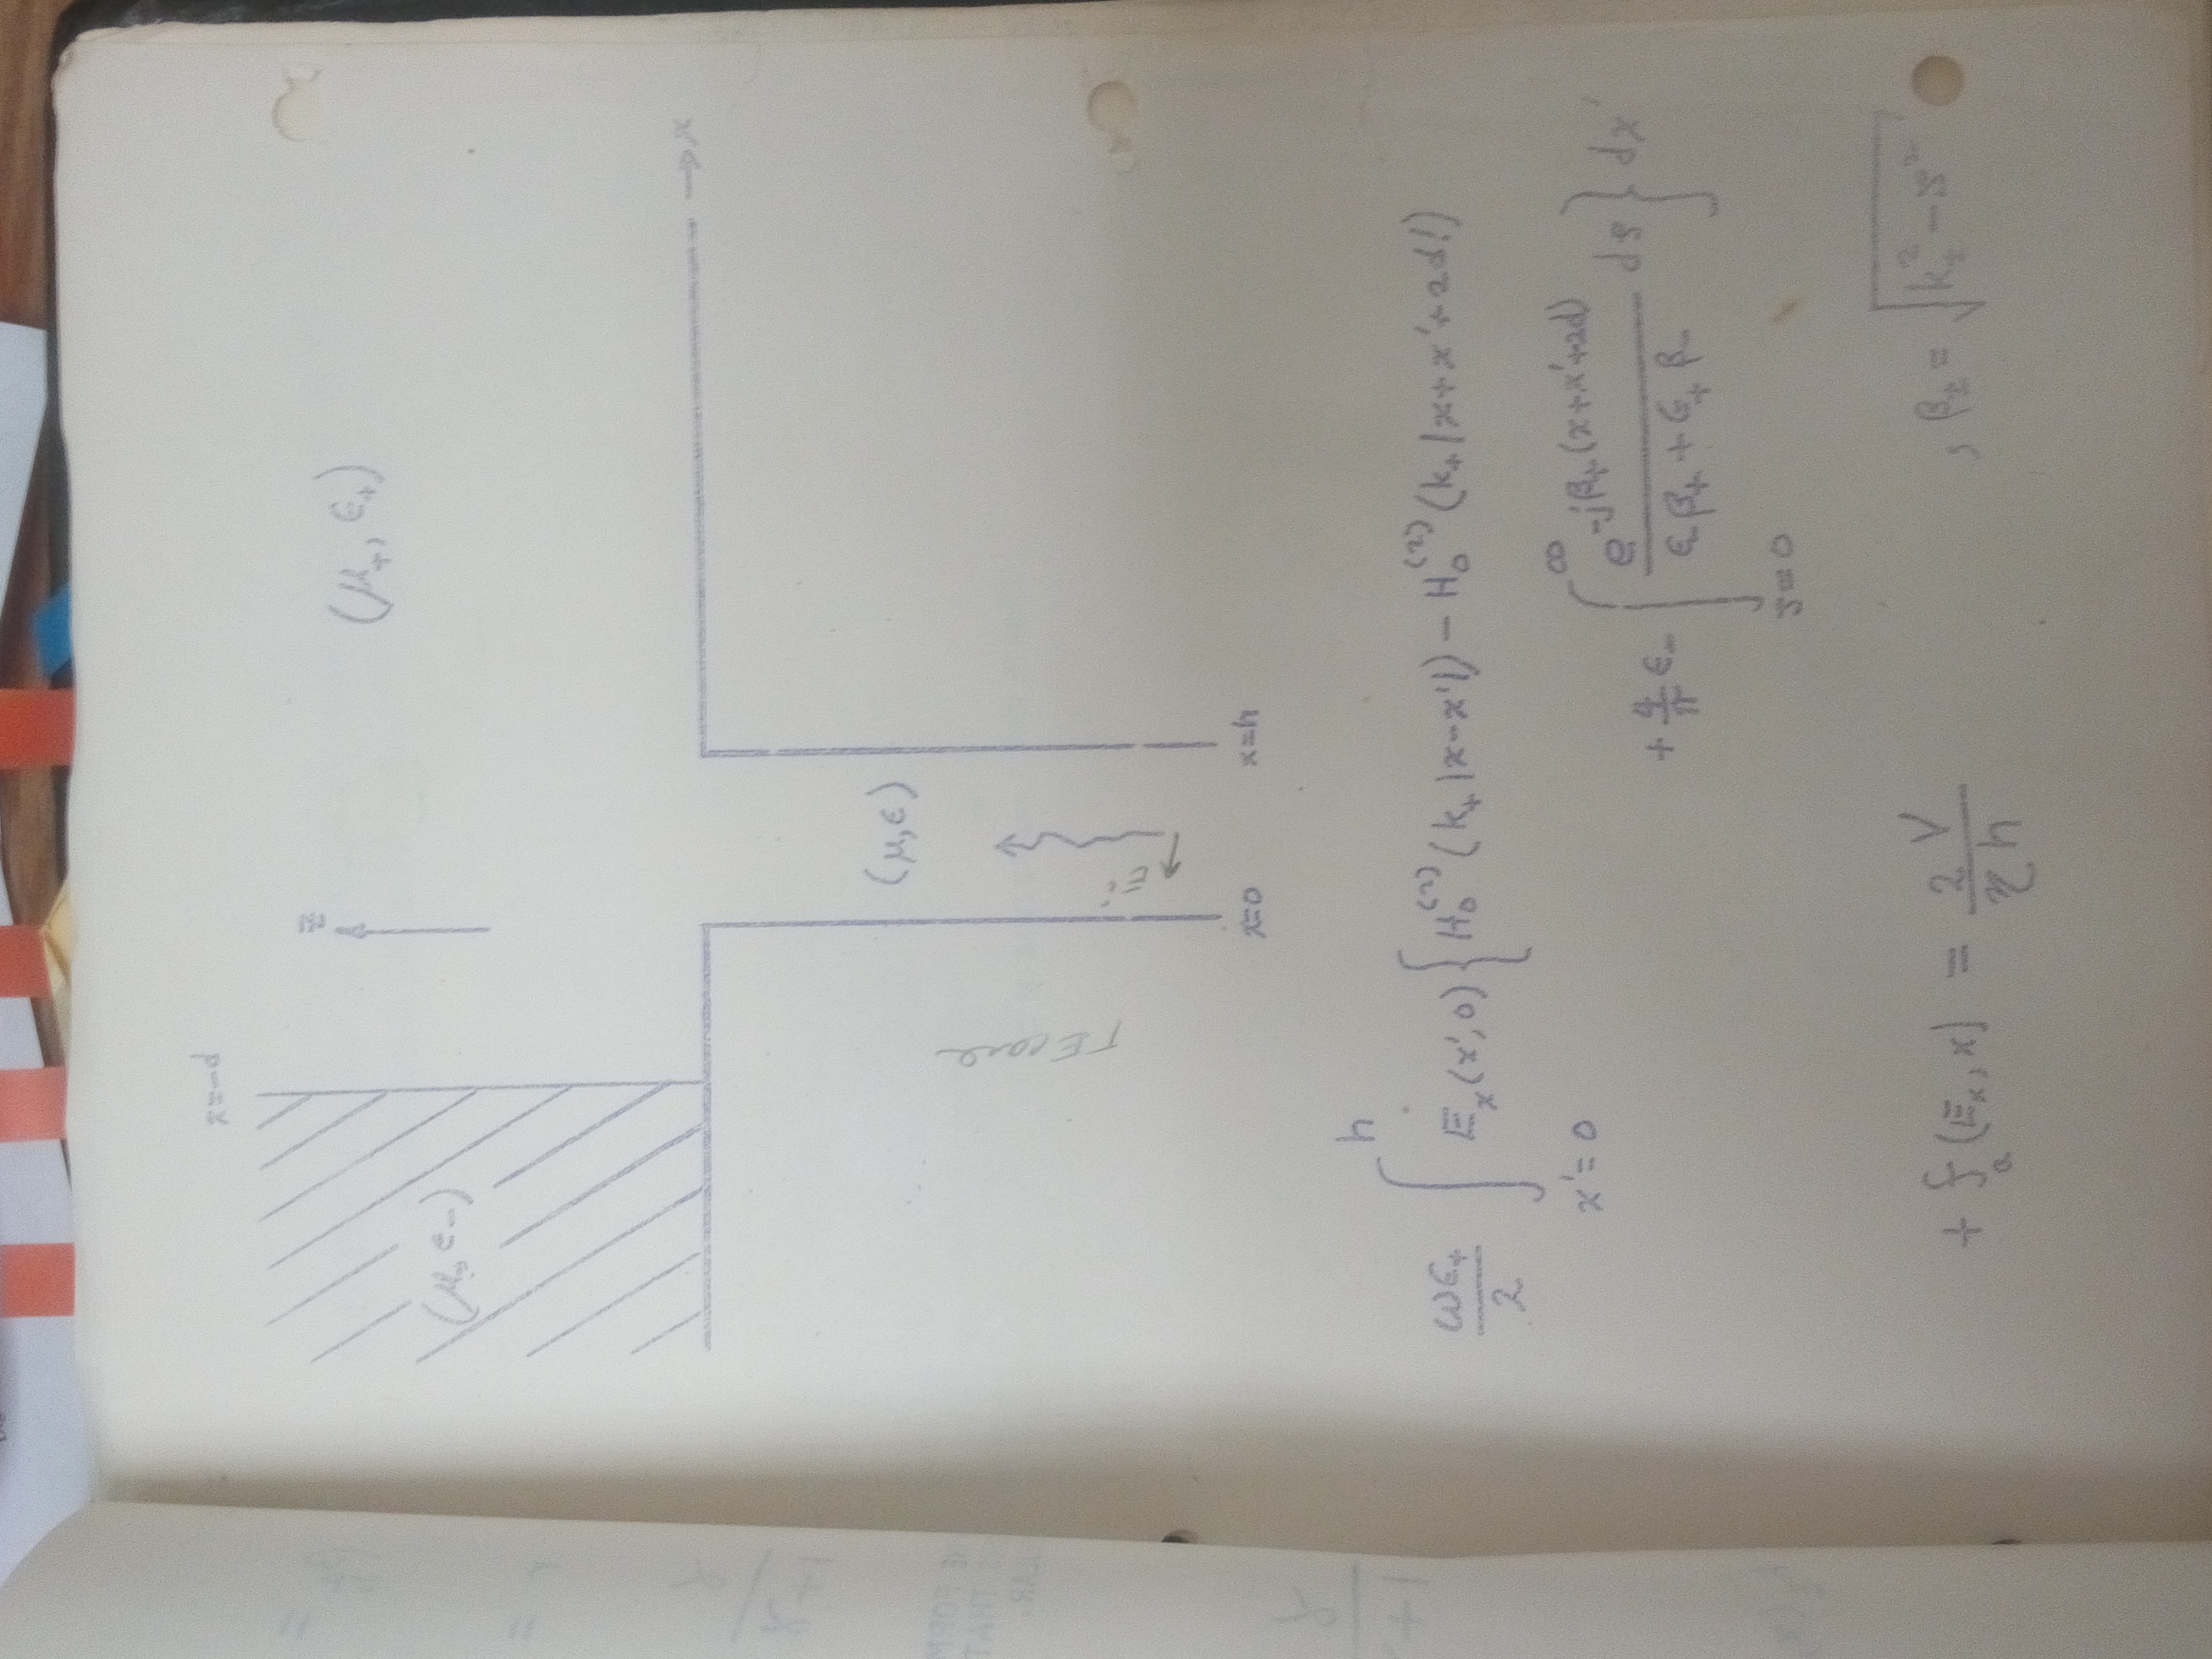 x=-d
z
(μ₋, ϵ₋)
(μ₊, ϵ₊)
→ x
(μ, ϵ)
TE case
Eⁱ
x=0
x=h
\frac{ωϵ₊}{2} ∫_{x'=0}^{h} Eₓ(x',0) { H₀⁽²⁾(k₊|x-x'|) - H₀⁽²⁾(k₊|x+x'+2d|)
+ \frac{4}{π} ϵ₋ ∫_{ζ=0}^{∞} \frac{e^{-jβ₊(x+x'+2d)}}{ϵ₋β₊ + ϵ₊β₋} dζ } dx'
+ f_a(Eₓ, x) = \frac{2}{η} \frac{V}{h} , β_± = \sqrt{k_±² - ζ²}